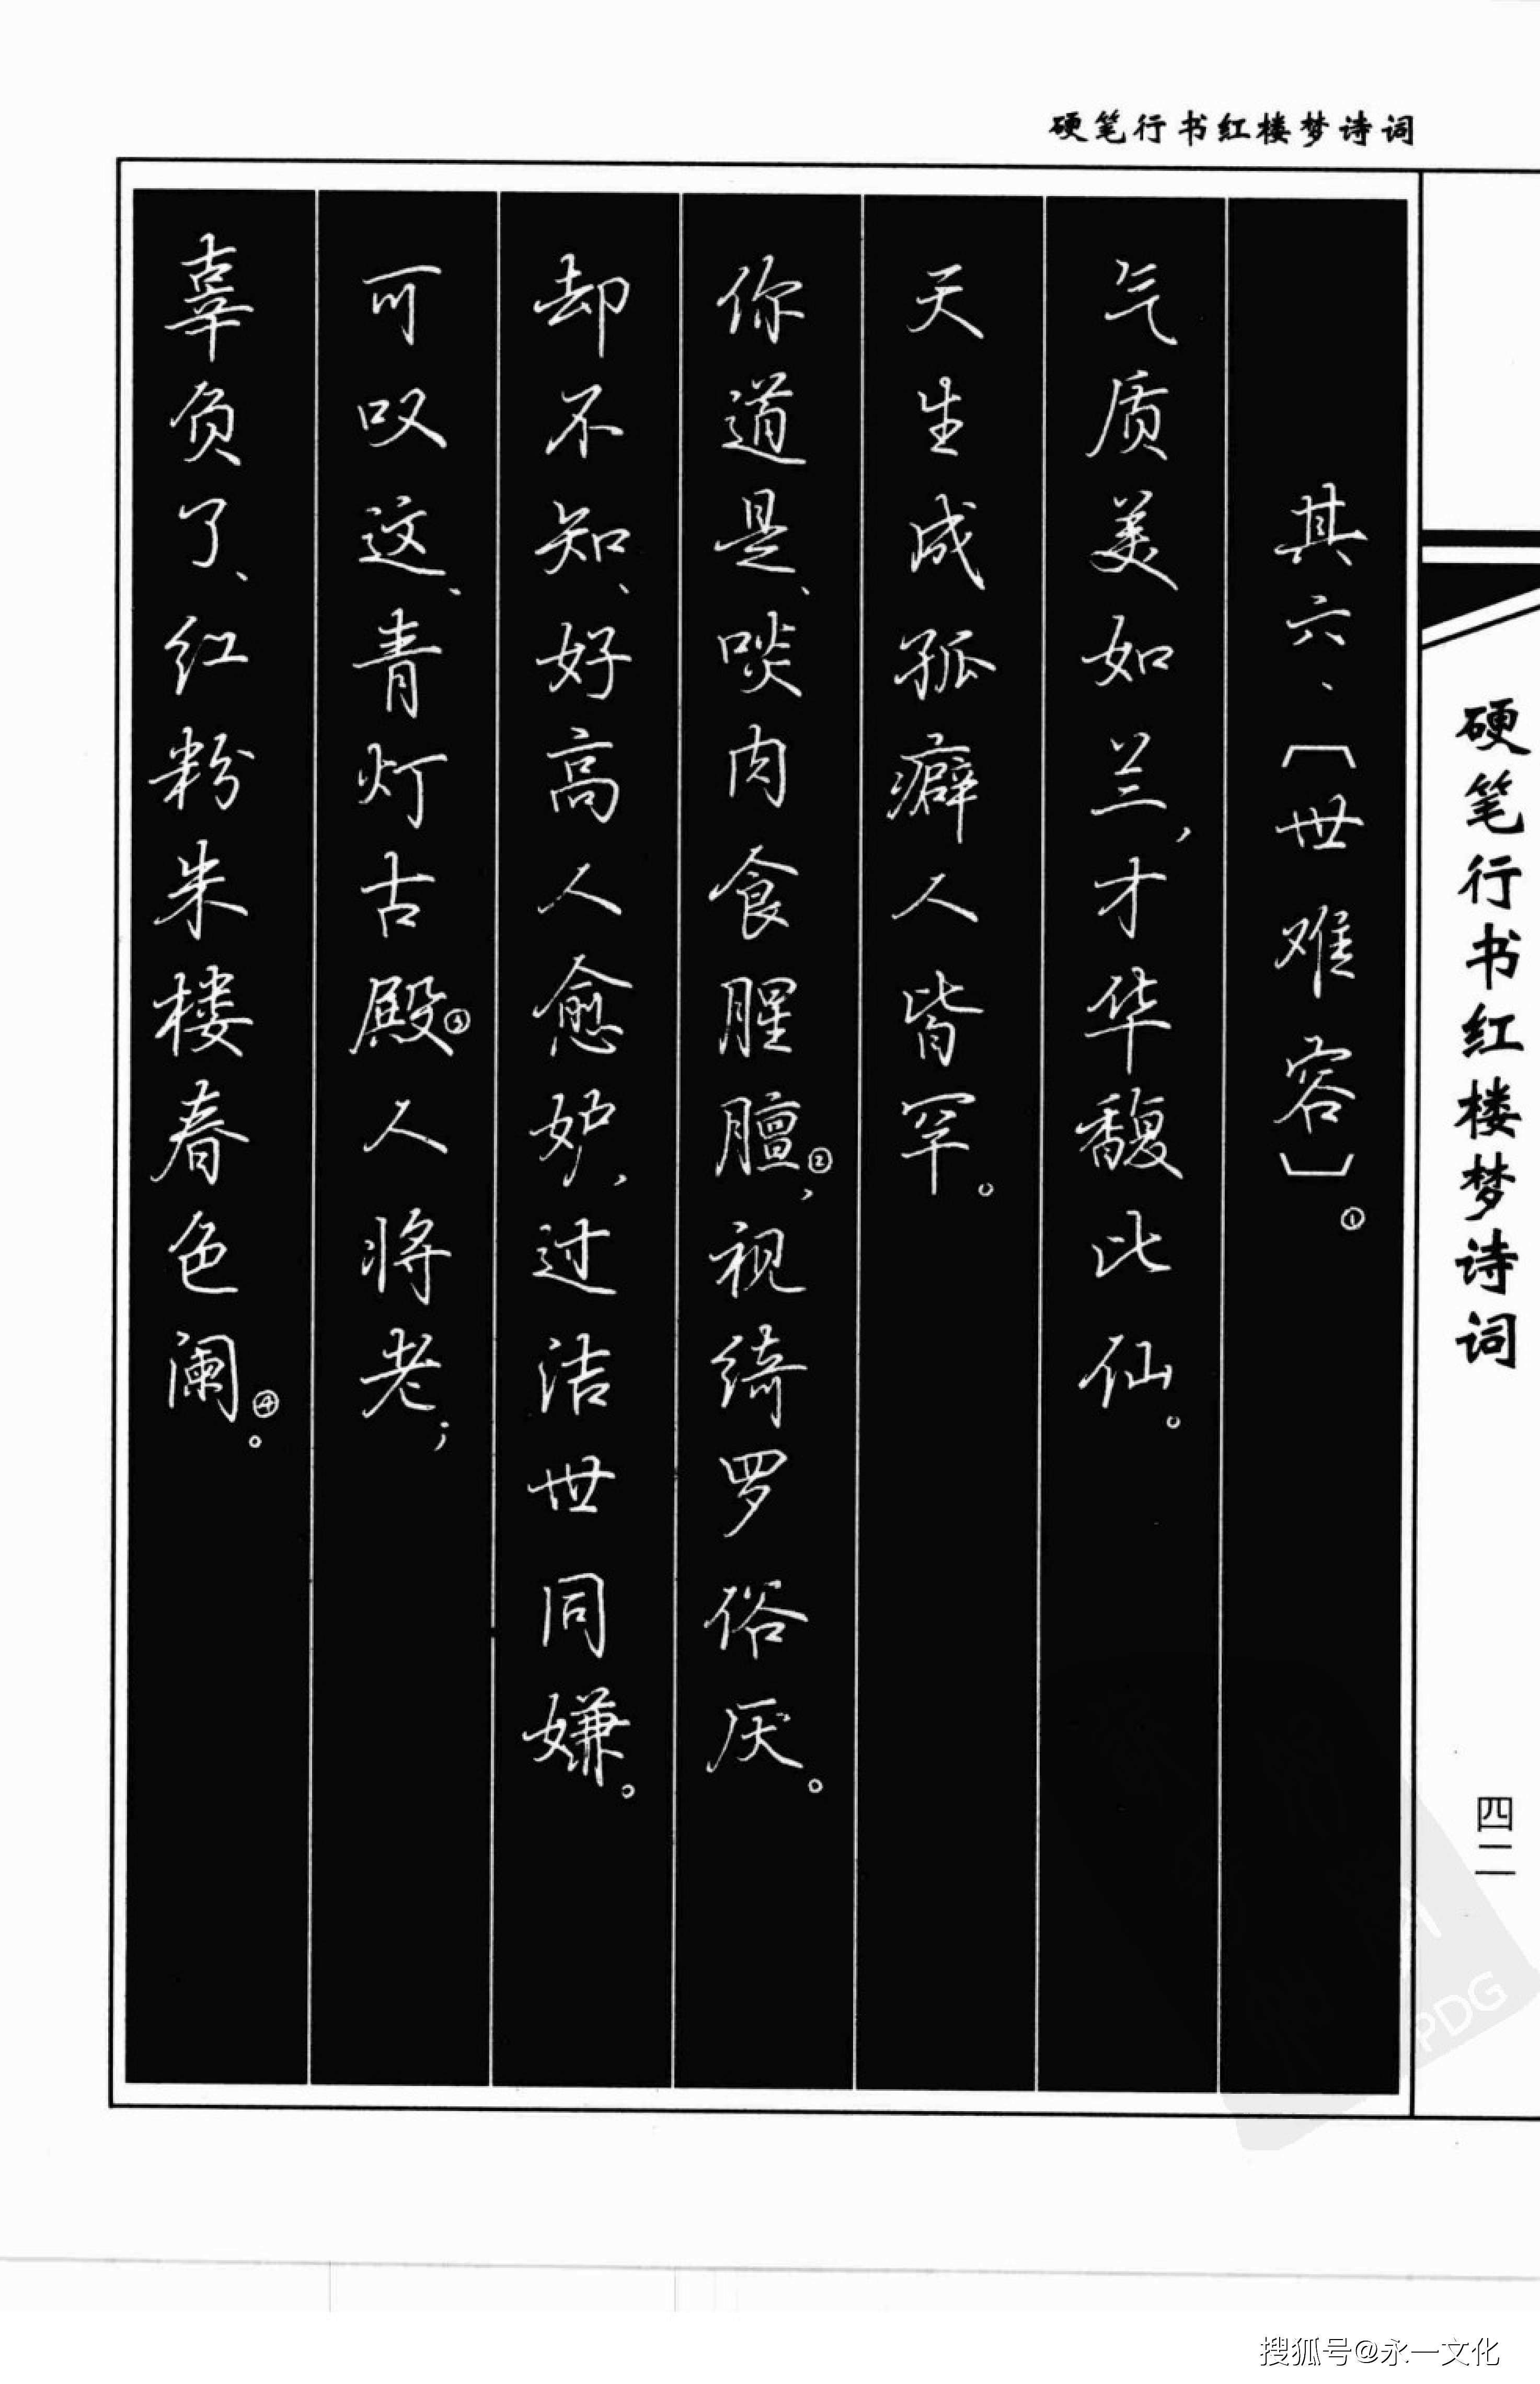 硬笔行书红楼梦诗词
其六、〔世难容〕①
气质美如兰，才华馥比仙。
天生成孤癖人皆罕。
你道是、啖肉食腥膻②，视绮罗俗厌。
却不知、好高人愈妒，过洁世同嫌。
可叹这、青灯古殿③人将老；
辜负了、红粉朱楼春色阑④。
硬笔行书红楼梦诗词
四二
PDG
搜狐号@永一文化